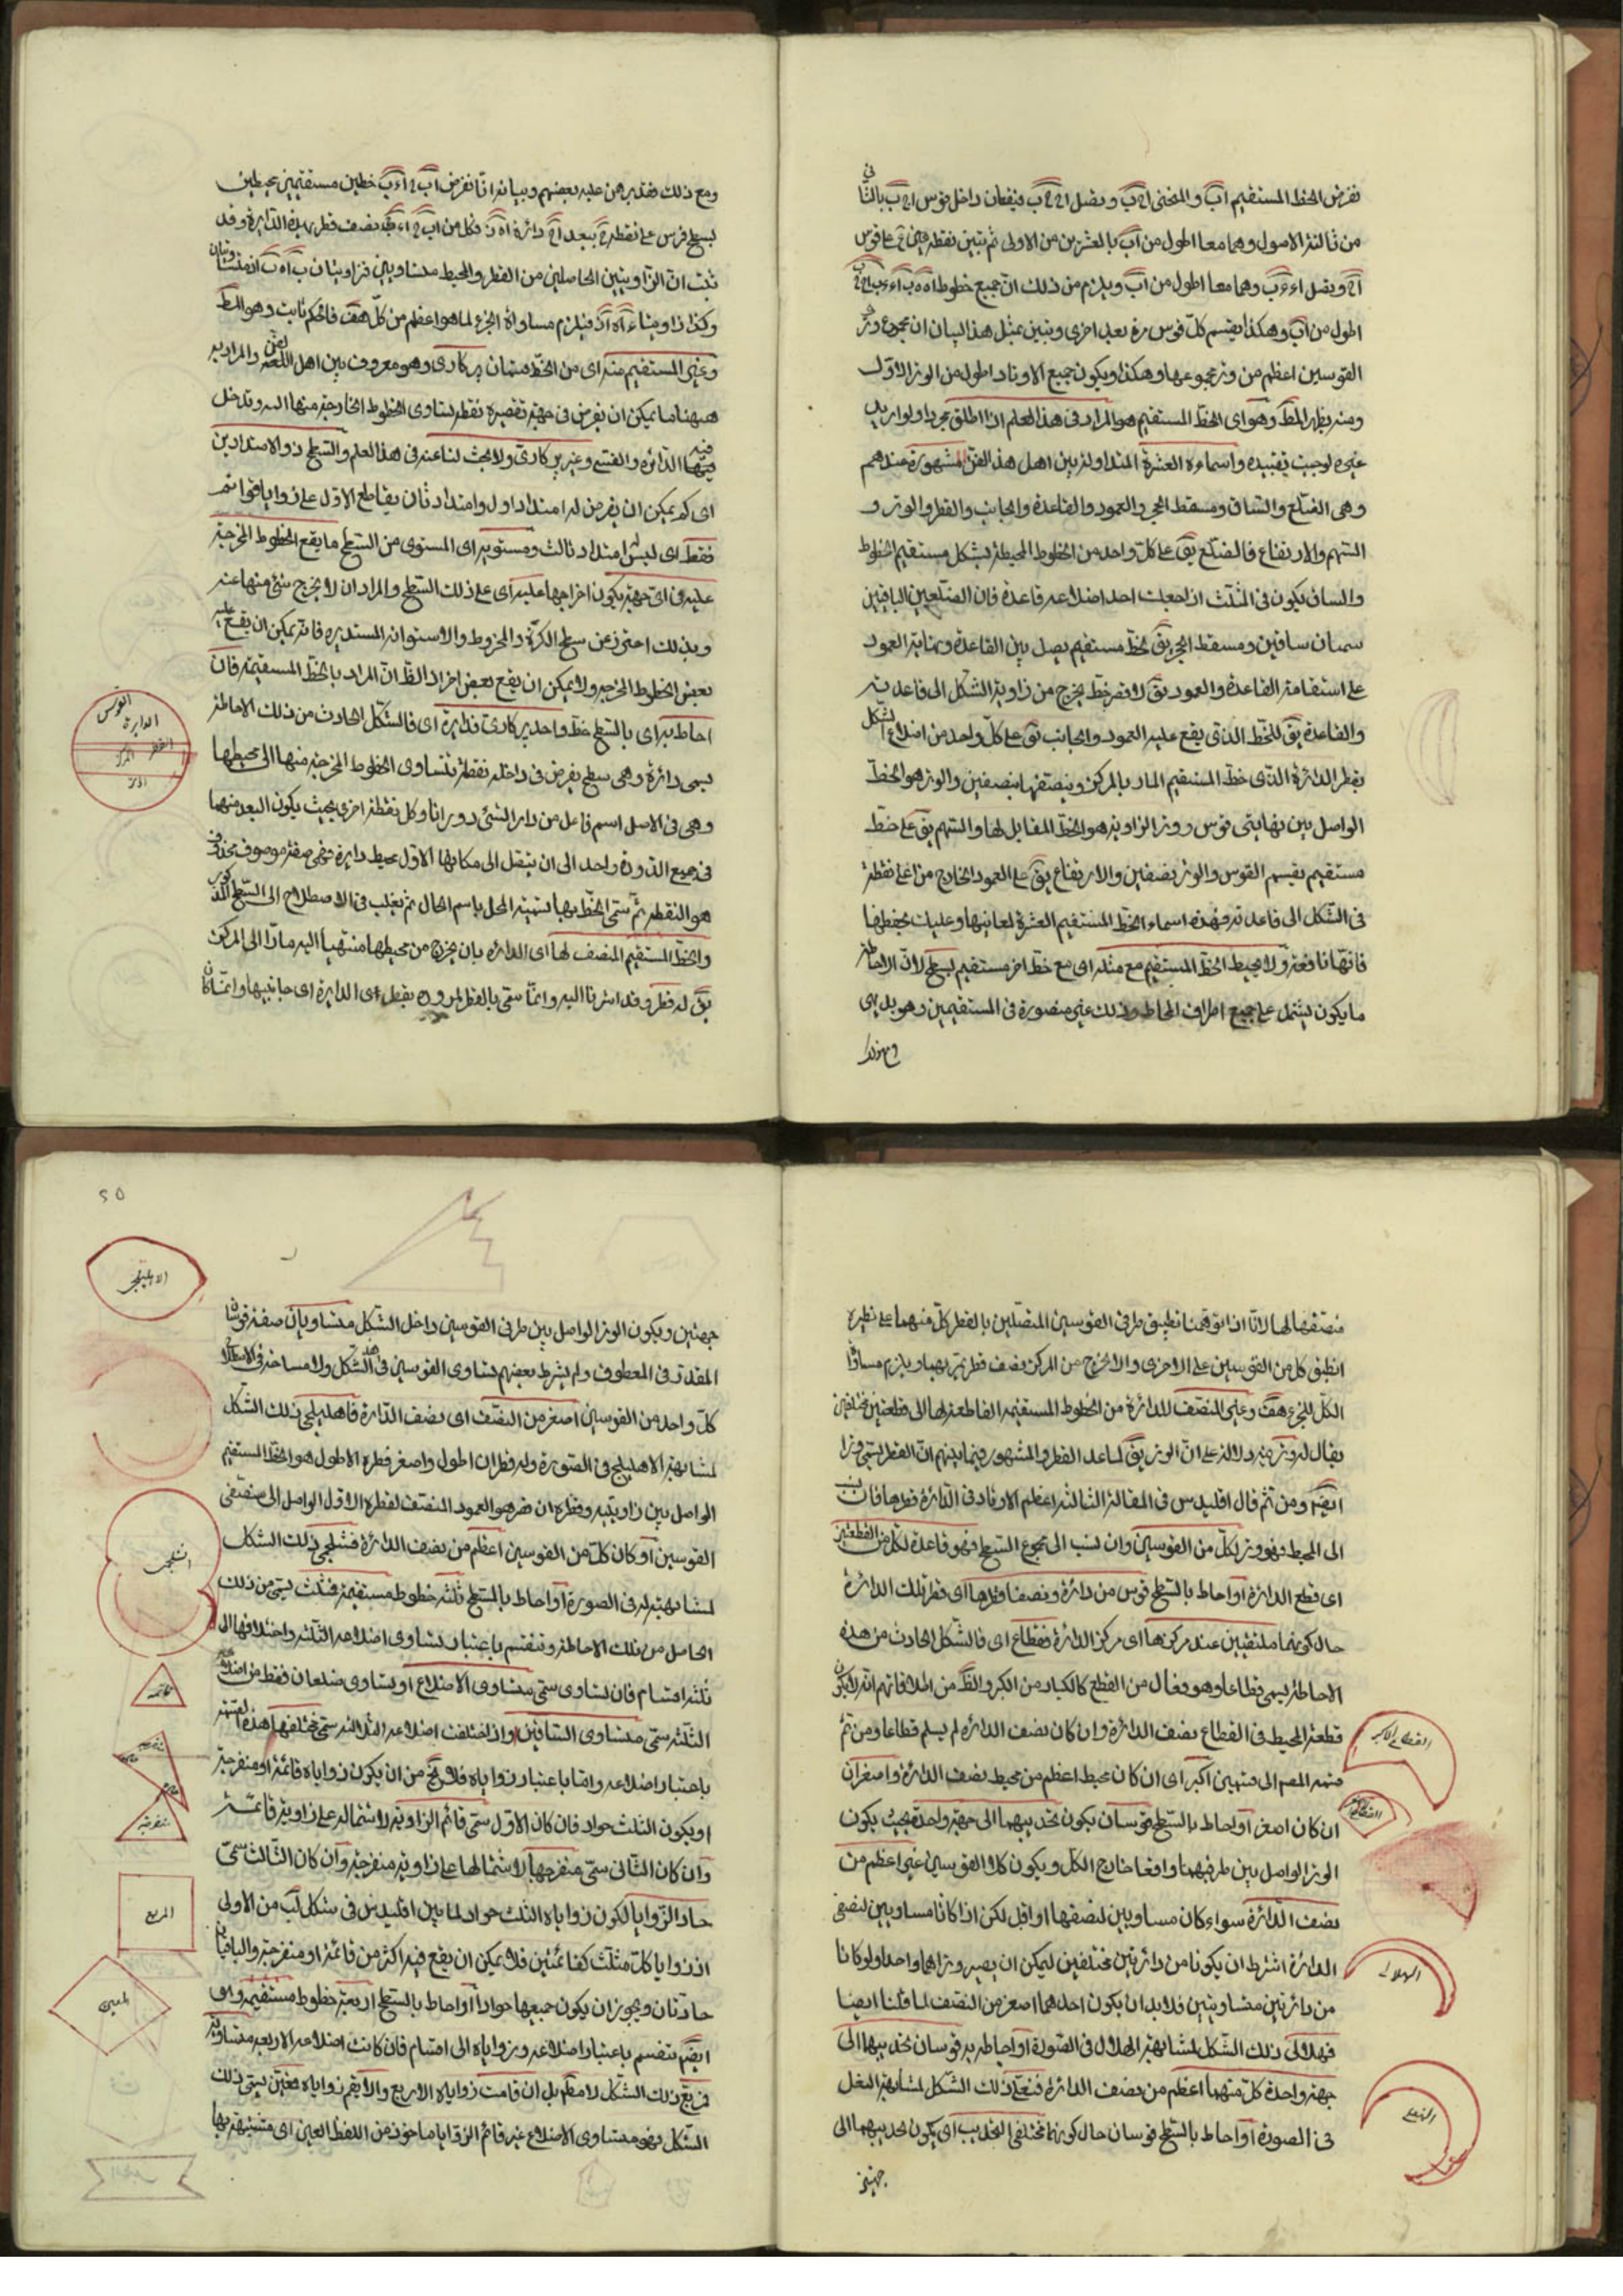 نفرض الخط المستقيم اب والمنحنى اج ب ونصل اج ج ب فيقعان داخل قوس اج ب بالثا
من ثالثة الاصول وهما معا اطول من اب بالعشرين من الاولى ثم نبين نقطتي على قوس
اطول من اب وهكذا يقسم كل قوس مرة بعد اخرى ونبين بمثل هذا البيان ان مجموع وتر
القوسين اعظم من وتر مجموعها وهكذا ويكون جميع الاوتار اطول من الوتر الاول
ومنه يظهر المط وهو اى الخط المستقيم هو المراد فى هذا العلم اذا اطلق مجردا ولو اريد
غيره لوجب تقييده واسماءه العشرة المتداولة بين اهل هذا الفن المشهورة عندهم
وهى الضلع والساق ومسقط الحجر والعمود والقاعدة والجانب والقطر والوتر و
السهم والارتفاع فالضلع يق على كل واحد من الخطوط المحيطة بشكل مستقيم الخطوط
والساق يكون فى المثلث اذا جعلت احد اضلاعه قاعدة فان الضلعين الباقيين
يسميان ساقين ومسقط الحجر يق لخط مستقيم يصل بين القاعدة ونهاية العمود
على استقامة القاعدة والعمود يق لاقصر خط يخرج من زاوية الشكل الى قاعدته
والقاعدة يق للخط الذى يقع عليه العمود والجانب يق على كل واحد من اضلاع الشكل
بقطر الدائرة الذى خط المستقيم المار بالمركز وينصفها بنصفين والوتر هو الخط
الواصل بين نهايتى قوس ووتر الزاوية هو الخط المقابل لها والسهم يق على خط
مستقيم يقسم القوس والوتر بنصفين والارتفاع يق على العمود الخارج من اعلى نقطة
فى الشكل الى قاعدته فهذه اسماء الخط المستقيم العشرة لمعانيها وعليك بحفظها
فانها نافعة ولا يحيط الخط المستقيم مع مثله اى مع خط اخر مستقيم بسطح لان الاحاطة
ما يكون يشتمل على جميع اطراف المحاط وذلك غير متصورة فى المستقيمين وهو بديهى
ومع ذلك فقد برهن عليه بعضهم وبيانه انا نفرض اب اء ب خطين مستقيمين يحيطان
ثبت ان الزاويتين الحاصلتين من القطر والمحيط متساويتين فزاويتان
فيلزم مساواة الجزء لما هو اعظم من كل هف فالحكم ثابت وهو المط
وغير المستقيم منه اى من الخط قسمان پركارى وهو معروف بين اهل اللغة والمراد به
ههنا ما يمكن ان يفرض فى جهة تقعيره نقطة تساوى الخطوط الخارجة منها اليه وتدخل
فيه الدائرة والقسى وغير پركارى ولا بحث لنا عنه فى هذا العلم والسطح ذو الامتدادين
اى كم يمكن ان يفرض له امتداد اول وامتداد ثان يقاطع الاول على زوايا قوائم
فقط اى ليس امتداد ثالث ومستويه اى المستوى من السطح ما يقع الخطوط المخرجة
عليه فى اى جهة يكون اخراجها عليه اى على ذلك السطح والمراد ان لا يخرج شئ منها عنه
وبذلك احترز عن سطح الكرة والمخروط والاستوانة المستديره فانه يمكن ان يقع عليه
بعض الخطوط المخرجه ولا يمكن ان يقع بعض اخر اذ الظ ان المراد بالخط المستقيمة فان
احاط به اى بالسطح خط واحد پركارى فدائرة اى فالشكل الحادث من ذلك الاحاطة
يسمى دائرة وهى سطح يفرض فى داخله نقطة تتساوى الخطوط المخرجة منها الى محيطها
وهى فى الاصل اسم فاعل من دار الشئ دورانا وكل نقطة اخرى بحيث يكون البعد منهما
فى جميع الدورة واحد الى ان ينتقل الى مكانها الاول محيط دايرة فهى صفة موصوف محذوف
هو النقطة ثم سمى الخط بها تسمية المحل باسم الحال ثم تغلب فى الاصطلاح الى السطح المذكور
والخط المستقيم المنصف لها اى الدائره بان يخرج من محيطها منتهيا اليه مارا الى المركز
يق له قطر وقد اشرنا اليه وانما سمى بالقطر لمروره بقطرى الدايرة اى جانبيها وانما كان
القوس
الدايرة
القطر
المركز
منصفها لها لانا اذا توهمنا تطبيق طرفى القوسين المتصلين بالقطر كل منهما على نظيره
انطبق كل من القوسين على الاخرى والا لخرج من المركز نصف قطر يمر بهما ويلزم مساواة
الكل للجزء هف وغير المنصف للدائرة من الخطوط المستقيمه القاطعة لها الى قطعتين مختلفتين
يقال له وتر فيه دلالة على ان الوتر يق لما عد القطر والمشهور فيما بينهم ان القطر يسمى وترا
ايضا ومن ثم قال اقليدس فى المقالة الثالثة اعظم الاوتار فى الدائرة قطرها فان نسب
الى المحيط فهو وتر لكل من القوسين وان نسب الى مجموع السطح فهو قاعدة لكل من القطعتين
اى قطع الدائرة او احاط بالسطح قوس من دائرة ونصفا قطرها اى قطر تلك الدائرة
حال كونهما ملتقيين عند مركزها اى مركز الدائرة فقطاع اى فالشكل الحادث من هذه
الاحاطة يسمى قطاعا وهو فعال من القطع كالكبار من الكبر والظ من اطلاقاتهم انه لا يكون
قطعة المحيط فى القطاع نصف الدائرة وان كان نصف الدائره لم يسلم قطاعا ومن ثم
قسمه المصم الى قسمين اكبر اى ان كان محيط اعظم من محيط نصف الدائرة واصغر ان
ان كان اصغر او احاط بالسطح قوسان يكون تحدبيهما الى جهة واحدة بحيث يكون
الوتر الواصل بين طرفيهما واقعا خارج الكل ويكون كلا القوسين غير اعظم من
نصف الدائرة سواء كان مساويين لنصفها او اقل لكن اذا كانا مساويين لنصفى
الدائرة اشترط ان يكونا من دائرتين مختلفتين ليمكن ان يصير وتراهما واحدا ولو كانا
من دائرتين متساويتين فلا بد ان يكون احدهما اصغر من النصف لما قلنا ايضا
فهلالى ذلك الشكل لمشابهة الهلال فى الصورة او احاط به قوسان تحدبيهما الى
جهة واحدة كل منهما اعظم من نصف الدائرة فنعلى ذلك الشكل لمشابهة النعل
فى الصورة او احاط بالسطح قوسان حال كونهما مختلفى التحديب اى يكون تحدبيهما الى
جهتين
القطاع الاكبر
الهلالى
النعلى
٢٥
جهتين ويكون الوتر الواصل بين طرفى القوسين داخل الشكل متساويان صفة قوسان
المقدر فى المعطوف ولم يشرط بعضهم تساوى القوسين فى هذا الشكل ولا مساحة فى الاصطلاح
كل واحد من القوسين اصغر من النصف اى نصف الدائرة فاهليلجى ذلك الشكل
لمشابهة الاهليلج فى الصورة وله قطران اطول واصغر فطره الاطول هو الخط المستقيم
الواصل بين زاويتيه وقطره الاقصر هو العمود المنصف لقطره الاول الواصل الى منتصفى
القوسين او كان كل من القوسين اعظم من نصف الدائرة فشلجمى ذلك الشكل
لمشابهته له فى الصورة او احاط بالسطح ثلثة خطوط مستقيمة فمثلث يسمى من ذلك
الحاصل من تلك الاحاطة وتنقسم باعتبار تساوى اضلاعه الثلثة واختلافها الى
ثلثة اقسام فان تساوى سمى متساوى الاضلاع او تساوى ضلعان فقط من اضلاعه
الثلثه سمى متساوى الساقين وان اختلفت اضلاعه الثلاثه سمى مختلفها هذه القسمة
باعتبار اضلاعه واما باعتبار زواياه فلا يخ من ان يكون زواياه قائمة او منفرجة
او يكون الثلث حواد فان كان الاول سمى قائم الزاوية لاشتماله على زاوية قائمة
وان كان الثانى سمى منفرجها لاشتمالها على زاوية منفرجة وان كان الثالث سمى
حاد الزوايا لكون زواياه الثلث حواد لما بين اقليدس فى شكل لب من الاولى
ان زوايا كل مثلث كقائمتين فلا يمكن ان يقع فيه اكثر من قائمة او منفرجة والباقيان
حادتان ويجوز ان يكون جميعها حوادا او احاط بالسطح اربعة خطوط مستقيمه وهو
ايضم تنقسم باعتبار اضلاعه وزواياه الى اقسام فان كانت اضلاعه الاربعه متساوية
فمربع ذلك الشكل لا مطم بل ان قامت زواياه الاربع والا يقم زواياه فمعين يسمى ذلك
الشكل فهو متساوى الاضلاع غير قائم الزوايا ماخوذ من اللفظ العين اى متشبهة بها
الاهليلجى
الشلجمى
قائمه
منفرجه
المربع
المعين